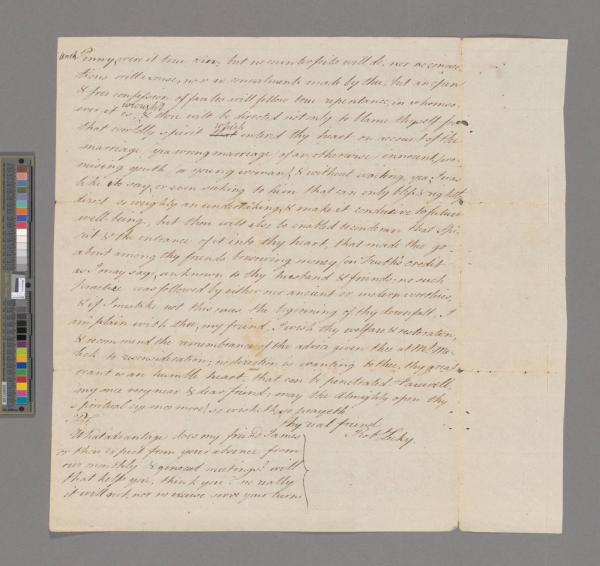 Penny, were it true coin, but no counterfeits will do, nor no connec-
tions will excuse, nor no concealments made by thee, but an open
& free confession of faults will follow true repentance, in whomso-
ever it is wrought, & thou wilt be directed not only to blame thyself for
that worldly spirit which entered thy heart on account of the
marriage, yea wrong marriage of an otherwise innocent, pro-
mising youth, a young woman, & without waiting, yea I was
like to say, or even seeking to him that can only bless & rightly
direct so weighty an undertaking, & make it conducive to future
well being, but thou wilt also be enabled to condemn that spi-
rit & the entrance of it into thy heart, that made thee go
about among thy friends borrowing money, on Truth's credit
as I may say, unknown to thy husband & friends, no such
practice was followed by either our ancient or modern worthies,
& if I mistake not this was the beginning of thy downfall. I
am plain with thee, my friend, I wish thy welfare & restoration,
& recommend the remembrance of the advice given thee at
to reconsideration; no direction is wanting to thee, thy great
want is an humble heart, that can be penetrated. Farewell,
my once very near & dear friend, may the Almighty open thy
spiritual eye once more! so wisheth, so prayeth
thy real friend
Robt. Lecky.
P.S.
What advantage does my friend James
or thou expect from your absence from
our monthly & general meetings? will
that help you, think you? no really
it will not, nor no excuse serve your turn